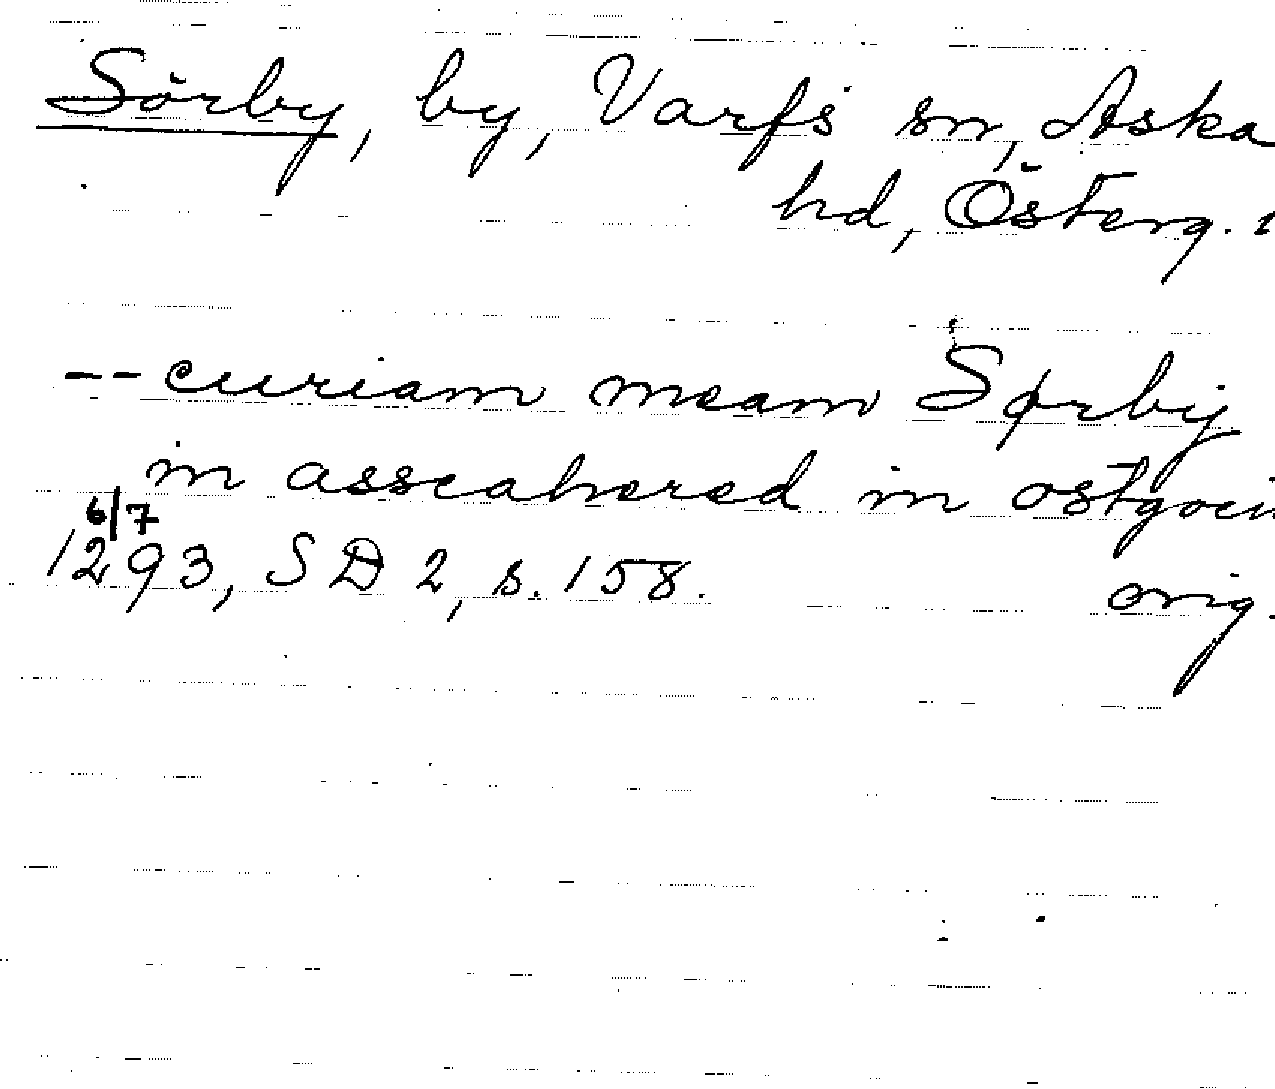 Sörby, by, Varfs sn, Aska
hd, Österg.
-- curiam meam Sørbij
in asscahæred in
6/7
1293, SD 2, s. 158. orig.